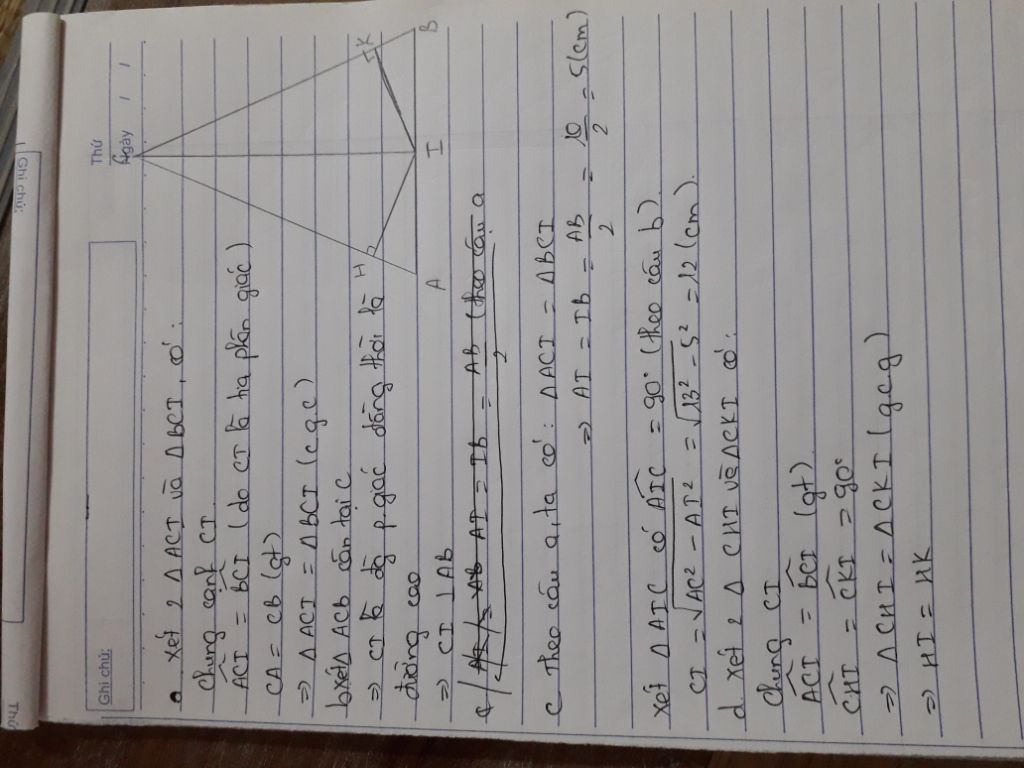 Ghi chú:
Thứ
Ghi chú:
Thứ
Ngày
C
H
K
A
I
B
a. xét 2 Δ ACI và Δ BCI, có:
Chung cạnh CI.
ACI = BCI (do CI là tia phân giác)
CA = CB (gt)
=> Δ ACI = Δ BCI (c g c)
b xét Δ ACB cân tại C
=> CI là đg p.giác đồng thời là
đường cao
=> CI ⊥ AB
AI = IB = AB/2 (theo câu a
c Theo câu a, ta có: Δ ACI = Δ BCI
=> AI = IB = AB/2 = 10/2 = 5(cm)
xét Δ AIC có AIC = 90° (theo câu b)
CI = √AC² - AI² = √13² - 5² = 12 (cm).
d. xét 2 Δ CHI và Δ CKI có:
Chung CI
ACI = BCI (gt)
CHI = CKI = 90°
=> Δ CHI = Δ CKI (g c g)
=> HI = HK